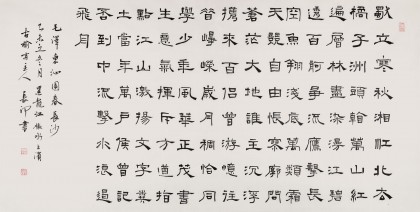 獨立寒秋湘江北去
橘子洲頭看萬山紅
遍層林盡染漫江碧
透百舸爭流鷹擊長
空魚翔淺底萬類霜
天競自由悵寥廓問
蒼茫大地誰主沉浮
攜來百侶曾遊憶往
昔崢嶸歲月稠恰同
學少年風華正茂書
生意氣揮斥方遒指
點江山激揚文字糞
土當年萬戶侯曾記
否到中流擊水浪遏
飛舟
毛澤東沁園春長沙
黑龍江
主人書